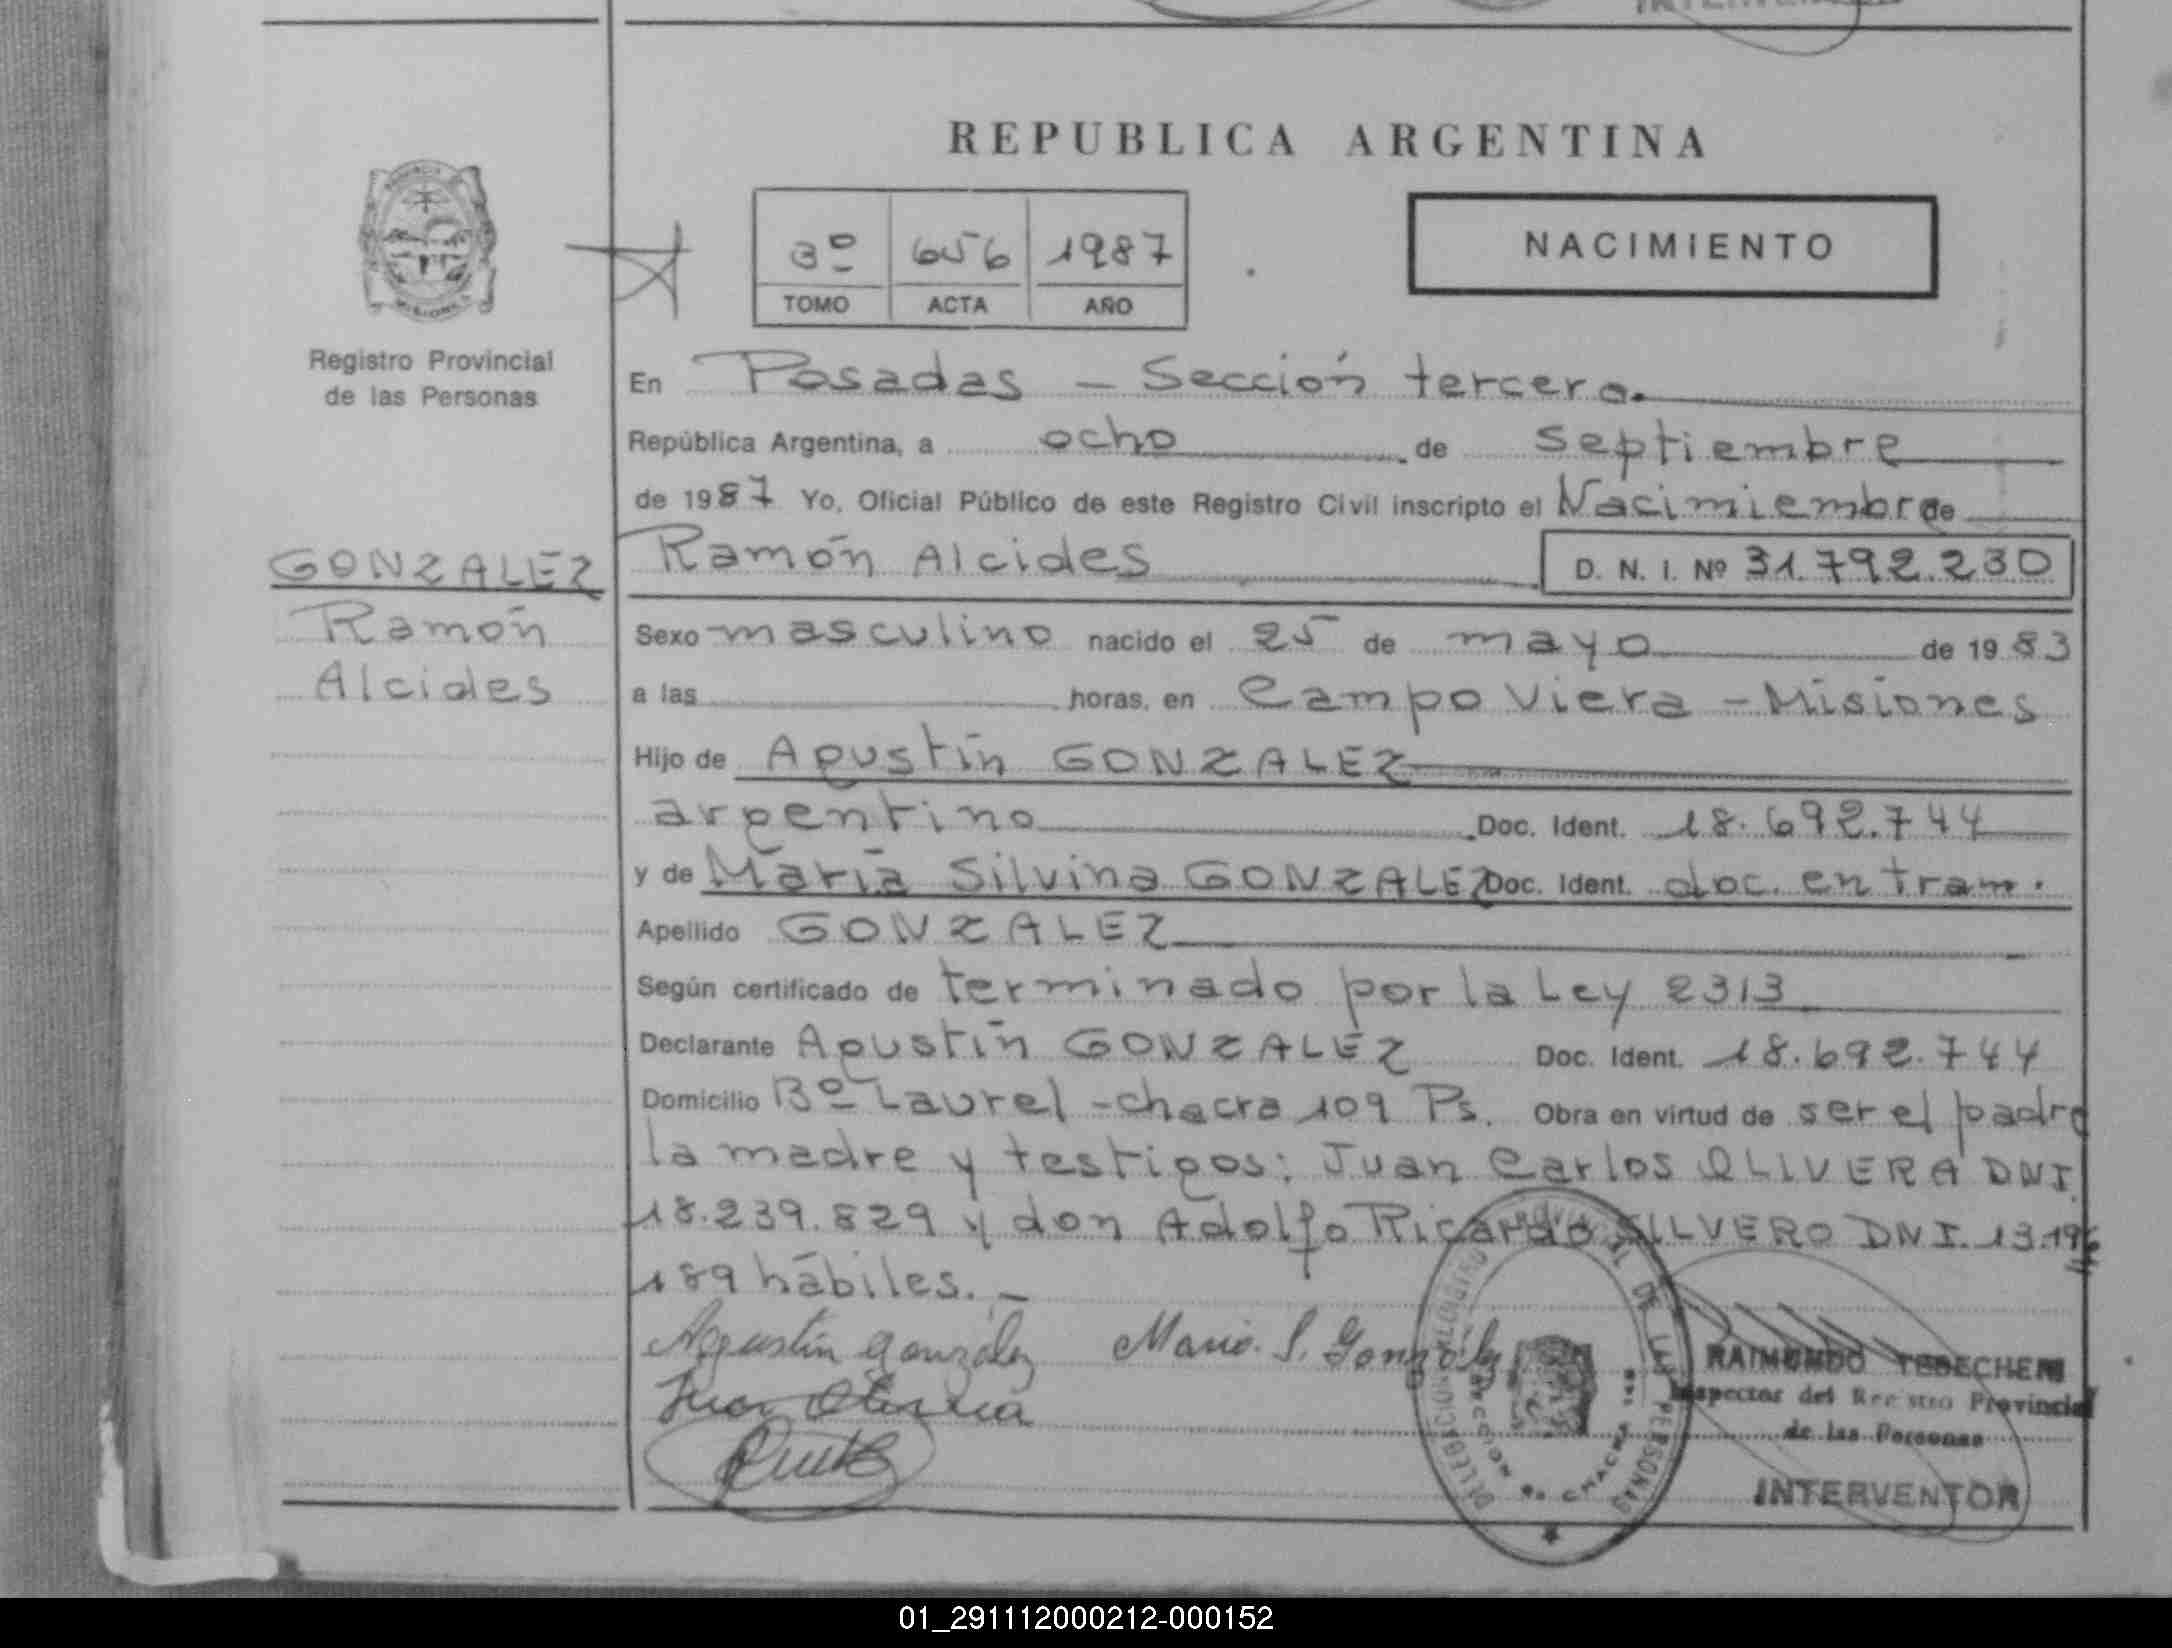 REPUBLICA ARGENTINA
3º 656 1987
TOMO ACTA AÑO
NACIMIENTO
MISIONES
Registro Provincial
de las Personas
En Posadas - Sección tercera.
República Argentina, a ocho de septiembre
de 1987 Yo, Oficial Público de este Registro Civil inscripto el Nacimiembre de
GONZALEZ
Ramón
Alcides
Ramón Alcides D. N. I. Nº 31.792.230
Sexo masculino nacido el 25 de mayo de 1983
a las horas, en Campo Viera - Misiones
Hijo de Agustín GONZALEZ
argentino Doc. Ident. 18.692.744
y de María Silvina GONZALEZ Doc. Ident. doc. en tram.
Apellido GONZALEZ
Según certificado de terminado por la Ley 2313
Declarante Agustín GONZALEZ Doc. Ident. 18.692.744
Domicilio Bº Laurel - chacra 109 Ps. Obra en virtud de ser el padre
la madre y testigos: Juan Carlos OLIVERA DNI.
18.239.829 y don Adolfo Ricardo SILVERO DNI. 13.196
189 hábiles. -
Agustín González Maria. S. González
Juan Olivera
DELEGACION PROVINCIAL DE LAS PERSONAS
CHACRA
RAIMUNDO TEBECHERI
Inspector del Registro Provincial
de las Personas
INTERVENTOR
01_291112000212-000152